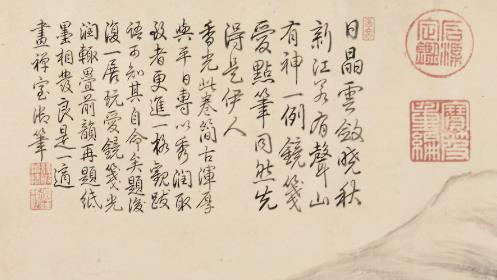 日晶雲斂曉秋
新江若有聲山
有神一例鏡箋
愛點筆同然先
得是伊人
香光此卷簡古渾厚
與平日專以秀潤取
致者更進一格觀跋
語可知其自命矣題後
復一展玩愛鏡箋光
潤輒疊前韻再題紙
墨相發良是一適
畫禪室御筆
石渠定鑑
寶笈重編